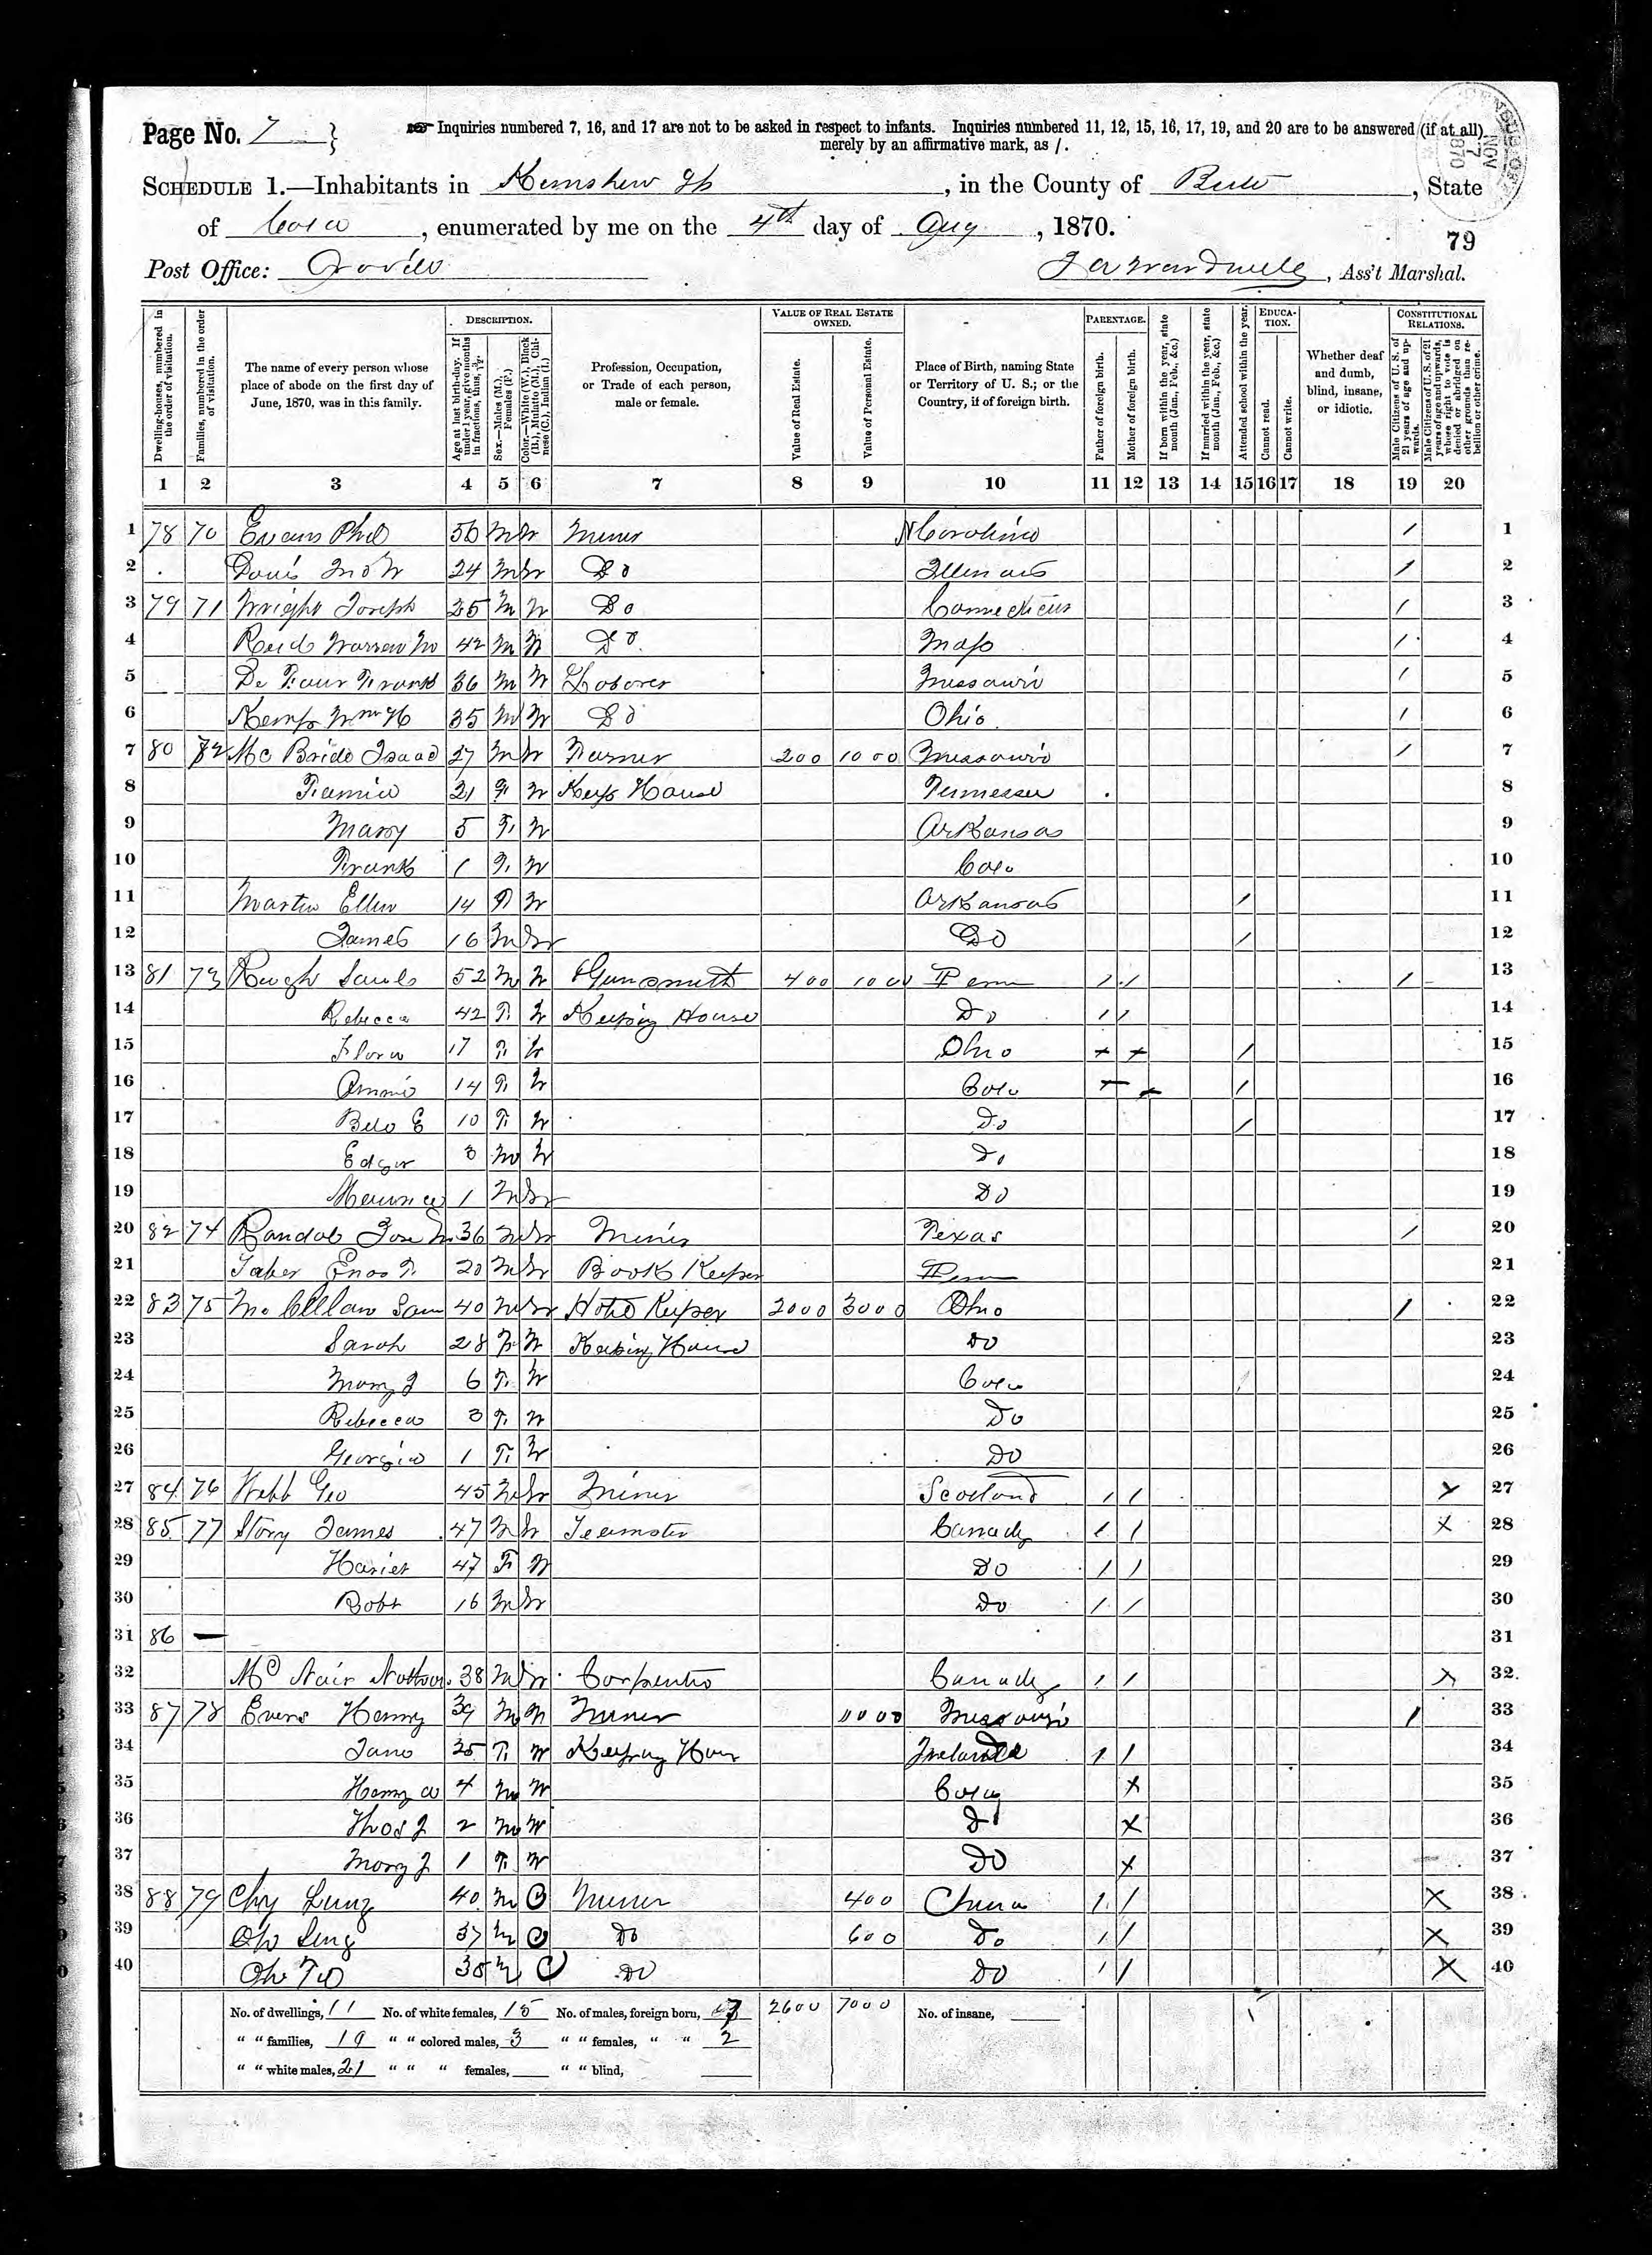 Page No. 7 }
Inquiries numbered 7, 16, and 17 are not to be asked in respect to infants. Inquiries numbered 11, 12, 15, 16, 17, 19, and 20 are to be answered (if at all)
merely by an affirmative mark, as /.
NOV 7 1870
SCHEDULE 1.—Inhabitants in Kimshew , in the County of Butte, State
of Cala, enumerated by me on the 4th day of Aug, 1870.
79
Post Office: Oroville , Ass't Marshal.
Dwelling-houses, numbered in the order of visitation.
Families, numbered in the order of visitation.
The name of every person whose place of abode on the first day of June, 1870, was in this family.
DESCRIPTION.
Age at last birth-day. If under 1 year, give months in fractions, thus, 3/12.
Sex.—Males (M.), Females (F.)
Color.—White (W.), Black (B.), Mulatto (M.), Chinese (C.), Indian (I.)
Profession, Occupation, or Trade of each person, male or female.
VALUE OF REAL ESTATE OWNED.
Value of Real Estate.
Value of Personal Estate.
Place of Birth, naming State or Territory of U. S.; or the Country, if of foreign birth.
PARENTAGE.
Father of foreign birth.
Mother of foreign birth.
If born within the year, state month (Jan., Feb., &c.)
If married within the year, state month (Jan., Feb., &c.)
Attended school within the year.
EDUCATION.
Cannot read.
Cannot write.
Whether deaf and dumb, blind, insane, or idiotic.
CONSTITUTIONAL RELATIONS.
Male Citizens of U. S. of 21 years of age and upwards.
Male Citizens of U. S. of 21 years of age and upwards, whose right to vote is denied or abridged on other grounds than rebellion or other crime.
1 2 3 4 5 6 7 8 9 10 11 12 13 14 15 16 17 18 19 20
1 78 70 Evans Phil 56 M W Miner N Carolina / 1
2 Davis Jno W 24 M W Do Illinois / 2
3 79 71 Wright Joseph 35 M W Do Connecticut / 3
4 Reid Warren 42 M W Do Mass / 4
5 Frank 36 M W Laborer Missouri / 5
6 Kemp Wm H 35 M W Do Ohio / 6
7 80 72 McBride Isaac 27 M W Farmer 200 1000 Missouri / 7
8 21 F W Keeps House Tennessee 8
9 Mary 5 F W Arkansas 9
10 Frank 1 F W Cala 10
11 Martin Ellen 14 F W Arkansas / 11
12 James 16 M W Do / 12
13 81 73 Saml 52 M W Gunsmith 400 1000 Penn / / / 13
14 Rebecca 42 F W Keeping House Do / / 14
15 Flora 17 F W Ohio + + / 15
16 Annie 14 F W Cala + + / 16
17 Bell E 10 F W Do / 17
18 Edgar 3 M W Do 18
19 Maurice 1 M W Do 19
20 82 74 Randal 36 M W Miner Texas / 20
21 Taber Enos F 20 M W Book Keeper Penn 21
22 83 75 McClellan Sam 40 M W Hotel Keeper 2000 3000 Ohio / 22
23 Sarah 28 F W Keeping House Do 23
24 Mary J 6 F W Cala / 24
25 Rebecca 3 F W Do 25
26 Georgia 1 F W Do 26
27 84 76 Webb Geo 45 M W Miner Scotland / / x 27
28 85 77 Story James 47 M W Teamster Canada / / x 28
29 Hariet 47 F W Do / / 29
30 Robt 16 M W Do / / 30
31 86 — 31
32 McNair 38 M W Carpenter Canada / / x 32
33 87 78 Evens Henry 39 M W Miner 1000 Missouri / 33
34 Jane 35 F W Keeping Hous Ireland / / 34
35 Henry W 4 M W Cala x 35
36 Thos J 2 M W Do x 36
37 Mary J 1 F W Do x 37
38 88 79 Chy Lung 40 M C Miner 400 China / / x 38
39 Oh Sing 37 M C Do 600 Do / / x 39
40 Oh 35 M C Do Do / / x 40
No. of dwellings, 11 No. of white females, 15 No. of males, foreign born, 7 2600 7000 No. of insane,
" " families, 10 " " colored males, 3 " " females, " " 2
" " white males, 21 " " " females, " " blind,